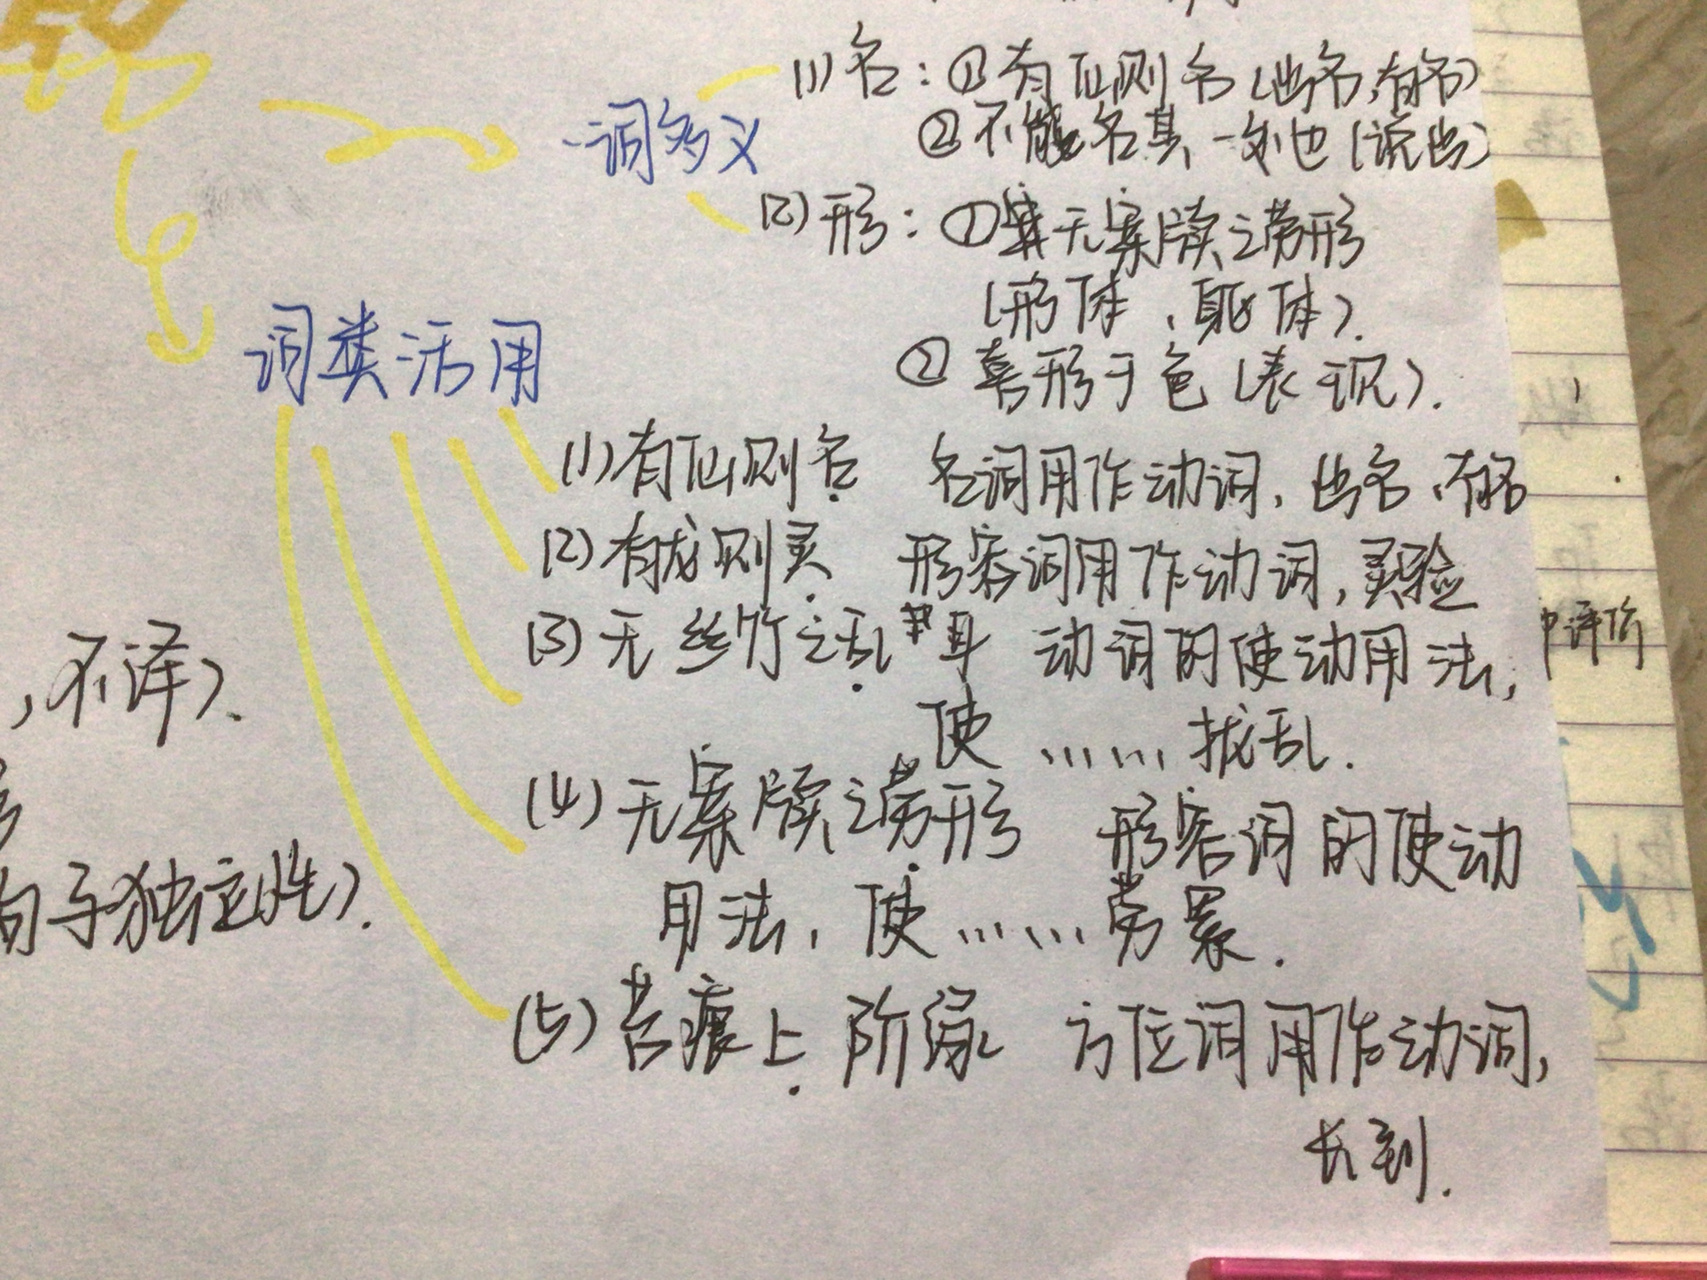 一词多义
(1)名：①有仙则名(出名,有名)
②不能名其一处也(说出)
(2)形：①无案牍之劳形
(形体、身体).
②喜形于色(表现).
词类活用
(1)有仙则名 名词用作动词,出名,有名
(2)有龙则灵 形容词用作动词,灵验
(3)无丝竹之乱耳 动词的使动用法,
使……扰乱.
(4)无案牍之劳形 形容词的使动
用法,使……劳累.
(5)苔痕上阶绿 方位词用作动词,
长到.
,不译).
句子独立性).
评价